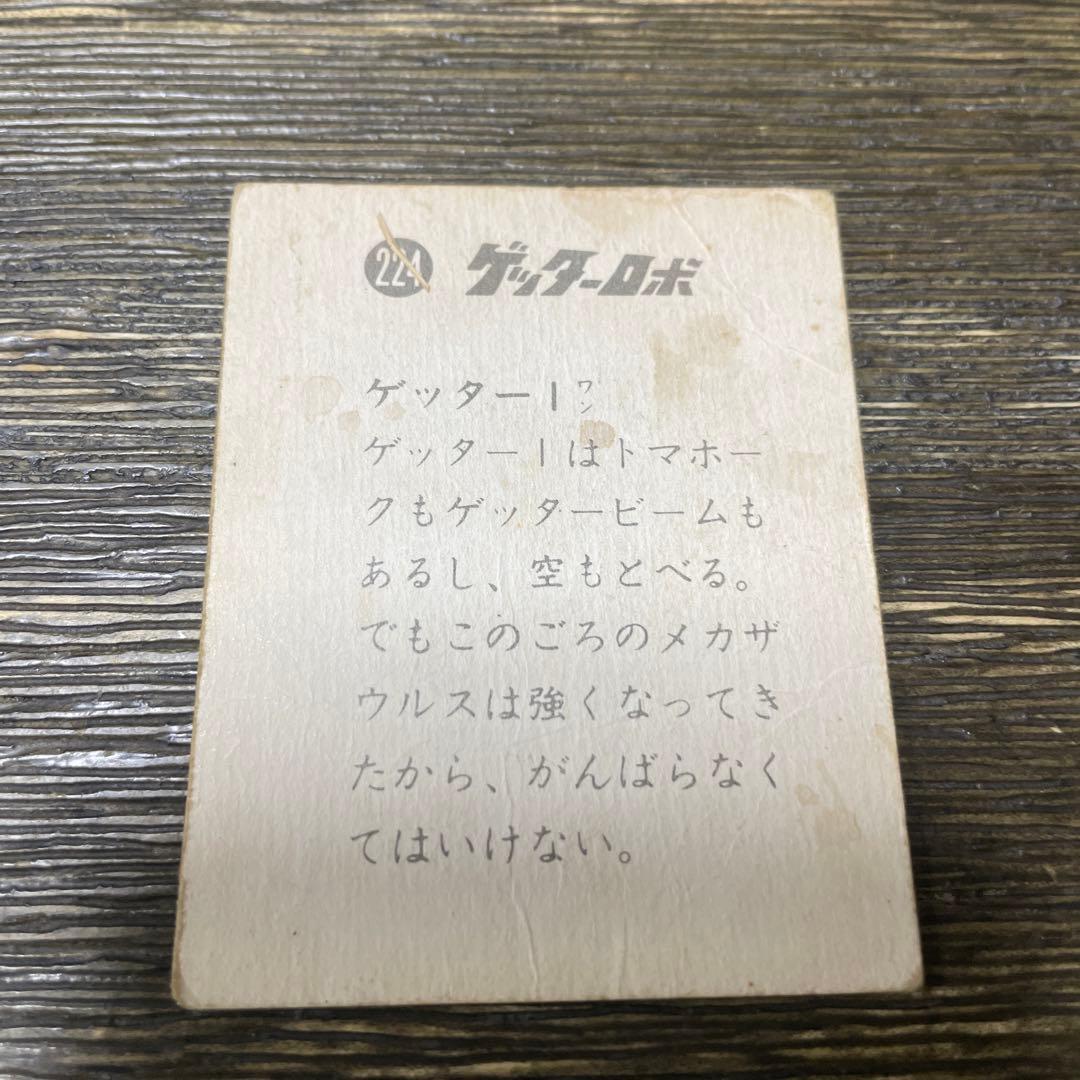 224 ゲッターロボ
ゲッター1ワン
ゲッター1はトマホー
クもゲッタービームも
あるし、空もとべる。
でもこのごろのメカザ
ウルスは強くなってき
たから、がんばらなく
てはいけない。